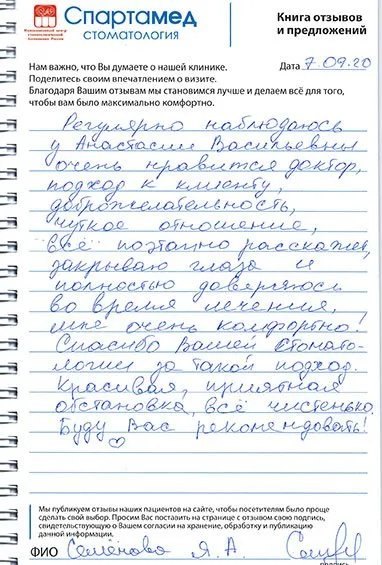 Спартамед
СТОМАТОЛОГИЯ
Книга отзывов
и предложений
Нам важно, что Вы думаете о нашей клинике.
Поделитесь своим впечатлением о визите.
Благодаря Вашим отзывам мы становимся лучше и делаем всё для того,
чтобы вам было максимально комфортно.
Дата 7.09.20
Регулярно наблюдаюсь
у Анастасии Васильевны
очень нравится доктор,
подход к клиенту,
доброжелательность,
чуткое отношение,
всё поэтапно расскажет,
закрываю глаза и
полностью доверяюсь
во время лечения,
мне очень комфортно!
Спасибо Вашей Стомато-
логии за такой подход.
Красивая, приятная
обстановка, всё чистенько.
Буду Вас рекомендовать!
Мы публикуем отзывы наших пациентов на сайте, чтобы посетителям было проще
сделать свой выбор. Просим Вас поставить на странице с отзывом свою подпись,
свидетельствующую о Вашем согласии на хранение, обработку и публикацию
данной информации.
ФИО Семёнова Я. А.
подпись